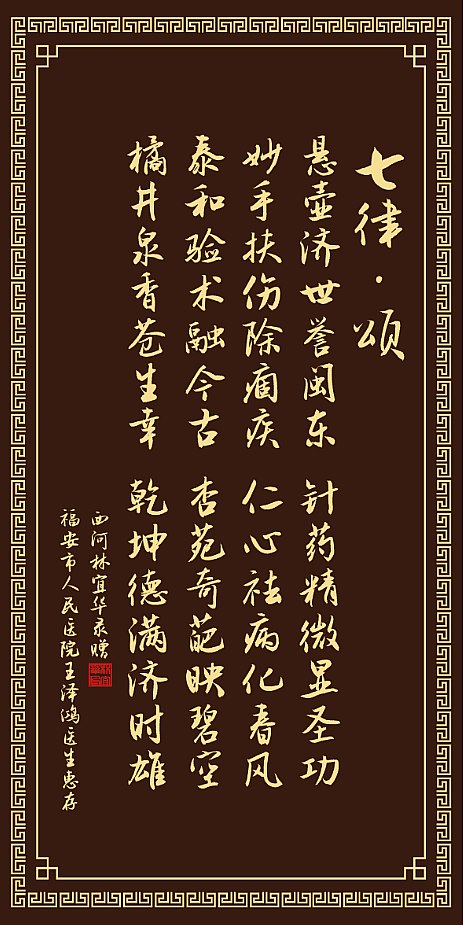 七律·颂
悬壶济世誉闽东 针药精微显圣功
妙手扶伤除痼疾 仁心祛病化春风
泰和验术融今古 杏苑奇葩映碧空
橘井泉香苍生幸 乾坤德满济时雄
西河林宜华录赠
福安市人民医院王泽鸿医生惠存